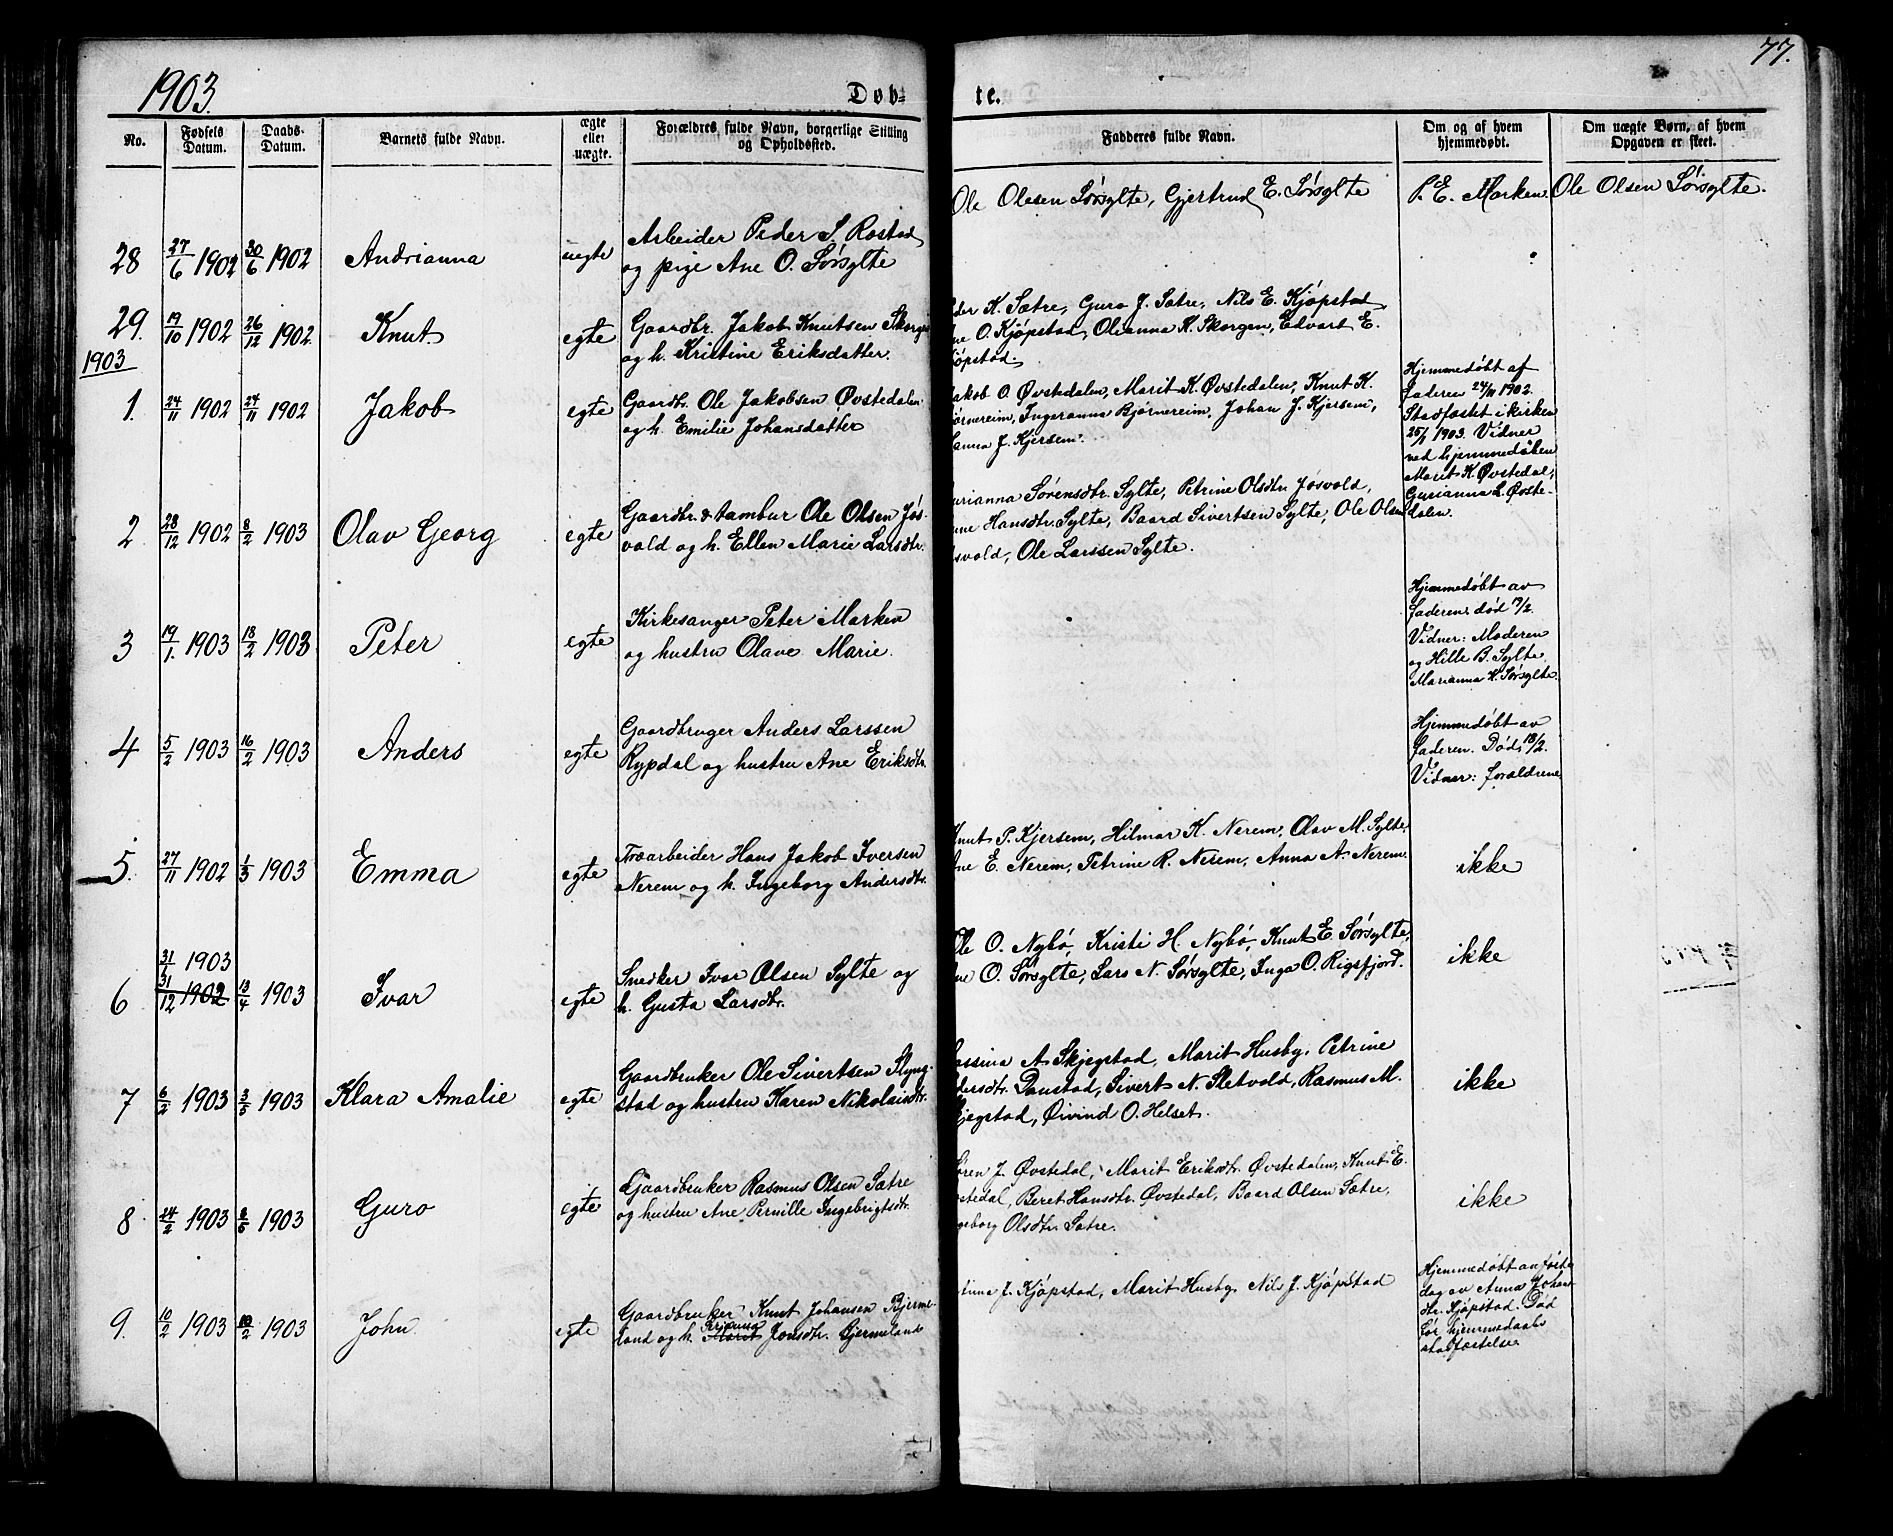 1903.
Døb-
te.
77.
No.
Fødsels Datum.
Daabs-Datum.
Barnets fulde Navn.
ægte eller uægte.
Forældres fulde Navn, borgerlige Stilling og Opholdssted.
Fadderes fulde Navn.
Om og af hvem hjemmedøbt.
Om uægte Børn, af hvem Opgaven er skeet.
28 27/6 1902 30/6 1902 Andrianna uegte
Arbeider Peder S. Rostad
og pige Ane O. Sørsylte
Ole Olesen Sørsylte, Gjertrud E. Sørsylte
P. E. Marken
Ole Olsen Sørsylte.
29. 19/10 1902 26/12 1902. Knut egte
Gaardbr. Jakob Knutsen Skorgen
og h. Kristine Eriksdatter.
der K. Sætre, Guro J. Sætre, Nils E. Kjøpstad
ne O. Kjøpstad, Olianna K. Skorgen, Edvart E.
jøpstad.
1903
1. 24/11 1902 24/11 1902 Jakob egte
Gaardbr. Ole Jakobsen Øvstedalen
og h. Emilie Johansdatter
Jakob O. Øvstedalen, Marit K. Øvstedalen, Knut K.
jørnereim, Ingeranna Bjørnereim, Johan J. Kjersem,
anna J. Kjersem.
Hjemmedøbt af
faderen 24/11 1902.
Stadfæstet i kirken
25/1 1903. Vidner
ved hjemmedåben
Marit K. Øvstedal,
Gurianna L. Øvste-
dalen.
2 28/12 1902 8/2 1903 Olav Georg egte
Gaardbr. & tambur Ole Olsen Jøs-
vold og h. Ellen Marie Larsdtr.
urianna Sørensdtr. Sylte, Petrine Olsdtr Jøsvold,
ne Hansdtr. Sylte, Baard Sivertsen Sylte, Ole Olsen
øsvold, Ole Larssen Sylte.
3 19/1. 1903 18/2 1903 Peter egte
Kirkesanger Peter Marken
og hustru Olave Marie.
Hjemmedøbt av
faderen død 19/2.
Vidner: Moderen
og Hille B. Sylte
Marianna K. Sørsylte.
4 5/2 1903 16/2 1903 Anders egte
Gaardbruger Anders Larssen
Rypdal og hustru Ane Eriksdtr.
Hjemmedøbt av
faderen. Død 18/2.
Vidner: forældrene
5. 27/11 1902 1/3 1903 Emma egte
Træarbeider Hans Jakob Iversen
Nerem og h. Ingeborg Andersdtr.
Knut P. Kjersem, Hilmar K. Nerem, Olav M. Sylte,
ne E. Nerem, Petrine R. Nerem, Anna A. Nerem.
ikke
31/1 1903
6 31/12 1902 13/4 1903 Ivar egte
Snedker Ivar Olsen Sylte og
h. Gusta Larsdtr.
Ole O. Nybø, Kristi H. Nybø, Knut E. Sørsylte,
ne O. Sørsylte, Lars N. Sørsylte, Inga O. Rigsfjord.
ikke
7 6/2 1903 3/5 1903 Klara Amalie egte
Gaardbruker Ole Sivertsen Slyng-
stad og hustru Karen Nikolaisdtr.
assina A. Skjegstad, Marit Husby, Petrine
dersdtr. Daustad, Sivert N. Sletvold, Rasmus M.
jegstad, Øivind O. Helset.
ikke
8 24/2 1903 8/5 1903 Guro egte
Gaardbruker Rasmus Olsen Sætre
og hustru Ane Pernille Ingebrigtsdtr.
øren J. Øvstedal, Marit Eriksdtr. Øvstedalen, Knut E.
vstedal, Beret Hansdtr. Øvstedal, Baard Olsen Sætre,
geborg Olsdtr. Sætre.
ikke
9. 10/2 1903 10/2 1903 John egte
Gaardbruker Knut Johansen Bjerme-
land og h. Marit Jonsdtr. Bjermeland
J. Kjøpstad, Marit Husby, Nils J. Kjøpstad
Hjemmedøbt
dag av Anna Johans
dtr. Kjøpstad. Død
før hjemmedaabs
stadfæstelse.